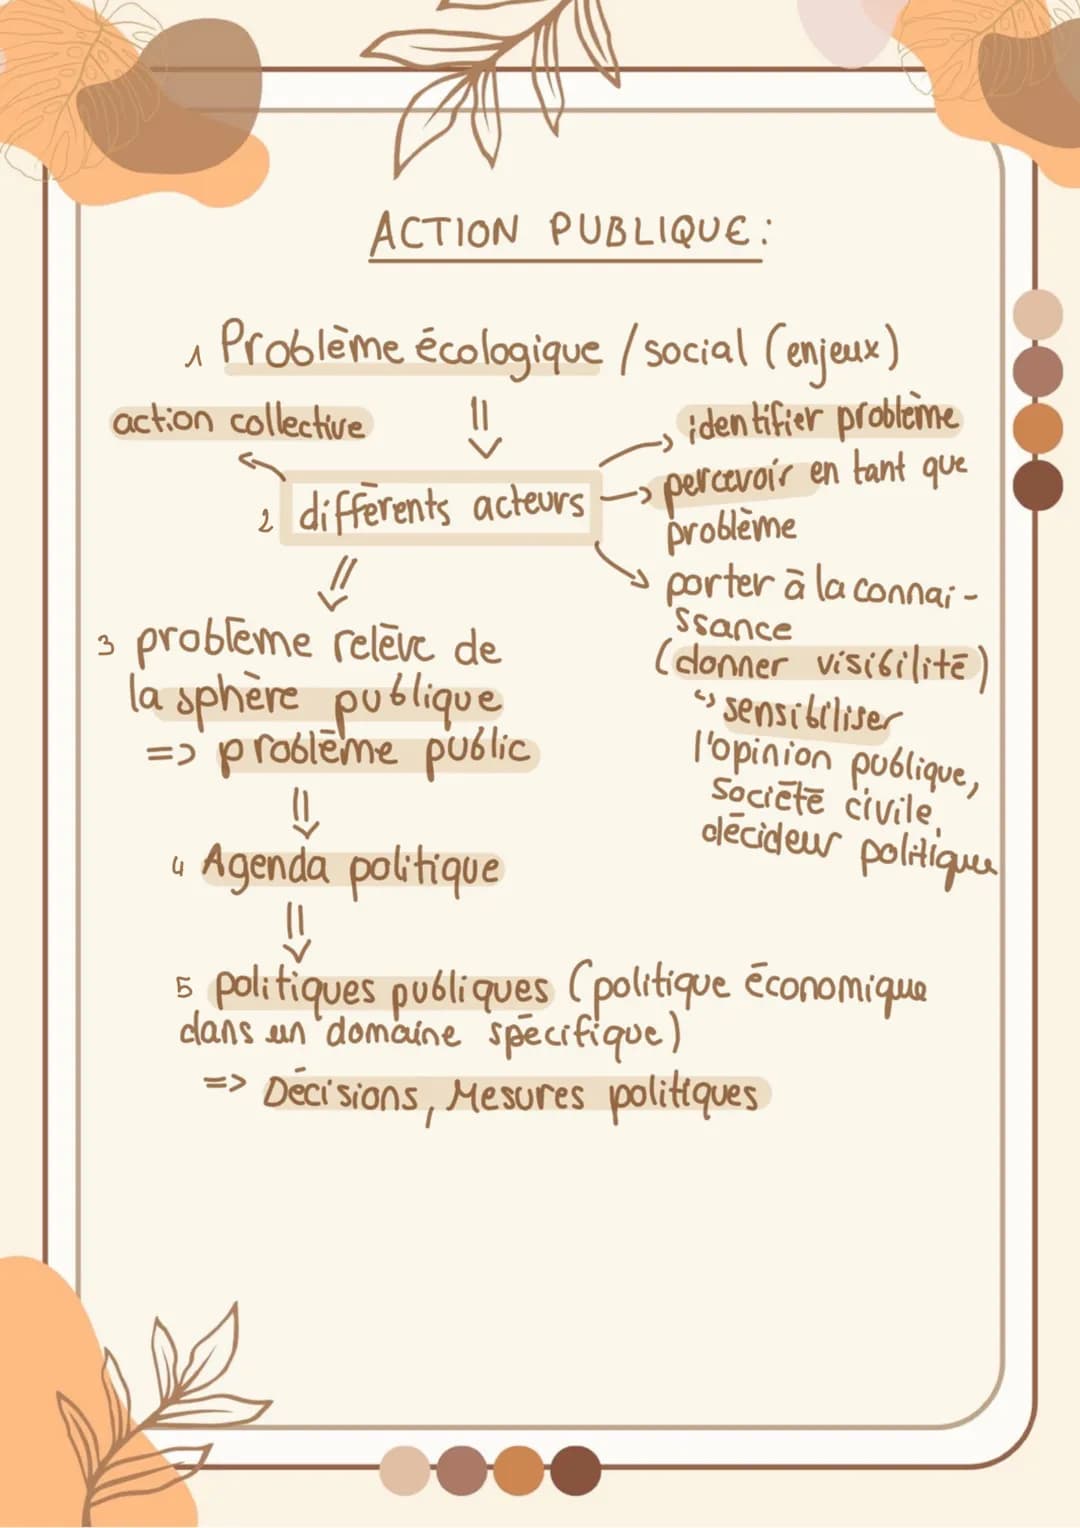 ACTION PUBLIQUE :
1 Problème écologique / social (enjeux)
action collective
2 différents acteurs
identifier problème
percevoir en tant que
problème
porter à la connai-
ssance
(donner visibilité)
↳ sensibiliser
l'opinion publique,
société civile,
décideur politique
3 problème relève de
la sphère publique
=> problème public
4 Agenda politique
5 politiques publiques (politique économique
dans un domaine spécifique)
=> Décisions, Mesures politiques